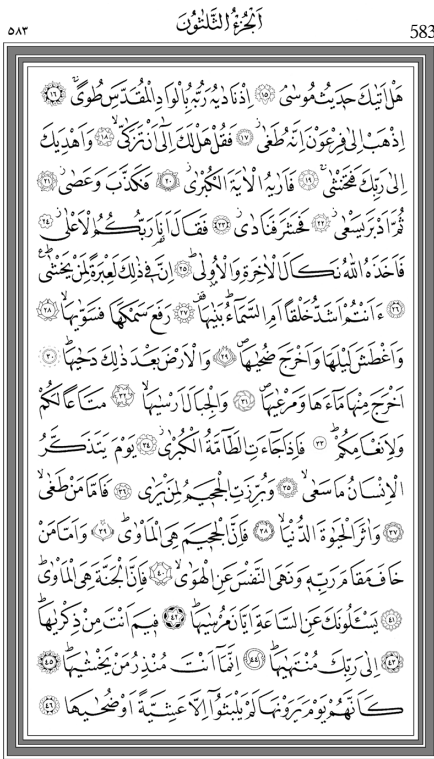 ٥٨٣ اَلْجُزْءُ الثَّلٰثُونَ 583
هَلْ اَتٰيكَ حَدِيثُ مُوسٰىۢ ﴿١٥﴾ اِذْ نَادٰيهُ رَبُّهُ بِالْوَادِ الْمُقَدَّسِ طُوًىۚ ﴿١٦﴾
اِذْهَبْ اِلٰى فِرْعَوْنَ اِنَّهُ طَغٰىۘ ﴿١٧﴾ فَقُلْ هَلْ لَكَ اِلٰٓى اَنْ تَزَكّٰىۙ ﴿١٨﴾ وَاَهْدِيَكَ
اِلٰى رَبِّكَ فَتَخْشٰىۚ ﴿١٩﴾ فَاَرٰيهُ الْاٰيَةَ الْكُبْرٰىۘ ﴿٢٠﴾ فَكَذَّبَ وَعَصٰىۘ ﴿٢١﴾
ثُمَّ اَدْبَرَ يَسْعٰىۘ ﴿٢٢﴾ فَحَشَرَ فَنَادٰىۘ ﴿٢٣﴾ فَقَالَ اَنَا۬ رَبُّكُمُ الْاَعْلٰىۘ ﴿٢٤﴾
فَاَخَذَهُ اللّٰهُ نَكَالَ الْاٰخِرَةِ وَالْاُو۫لٰىۜ ﴿٢٥﴾ اِنَّ فٖي ذٰلِكَ لَعِبْرَةً لِمَنْ يَخْشٰىۜ
﴿٢٦﴾ ءَاَنْتُمْ اَشَدُّ خَلْقًا اَمِ السَّمَٓاءُۜ بَنٰيهَا۠ ﴿٢٧﴾ رَفَعَ سَمْكَهَا فَسَوّٰيهَاۙ ﴿٢٨﴾
وَاَغْطَشَ لَيْلَهَا وَاَخْرَجَ ضُحٰيهَاۖ ﴿٢٩﴾ وَالْاَرْضَ بَعْدَ ذٰلِكَ دَحٰيهَاۜ ﴿٣٠﴾
اَخْرَجَ مِنْهَا مَٓاءَهَا وَمَرْعٰيهَاۖ ﴿٣١﴾ وَالْجِبَالَ اَرْسٰيهَاۙ ﴿٣٢﴾ مَتَاعًا لَكُمْ
وَلِاَنْعَامِكُمْۜ ﴿٣٣﴾ فَاِذَا جَٓاءَتِ الطَّٓامَّةُ الْكُبْرٰىۘ ﴿٣٤﴾ يَوْمَ يَتَذَكَّرُ
الْاِنْسَانُ مَا سَعٰىۙ ﴿٣٥﴾ وَبُرِّزَتِ الْجَحٖيمُ لِمَنْ يَرٰى ﴿٣٦﴾ فَاَمَّا مَنْ طَغٰىۙ
﴿٣٧﴾ وَاٰثَرَ الْحَيٰوةَ الدُّنْيَاۙ ﴿٣٨﴾ فَاِنَّ الْجَحٖيمَ هِيَ الْمَأْوٰىۜ ﴿٣٩﴾ وَاَمَّا مَنْ
خَافَ مَقَامَ رَبِّهٖ وَنَهَى النَّفْسَ عَنِ الْهَوٰىۙ ﴿٤٠﴾ فَاِنَّ الْجَنَّةَ هِيَ الْمَأْوٰىۜ
﴿٤١﴾ يَسْـَٔلُونَكَ عَنِ السَّاعَةِ اَيَّانَ مُرْسٰيهَاۜ ﴿٤٢﴾ فٖيمَ اَنْتَ مِنْ ذِكْرٰيهَاۜ
﴿٤٣﴾ اِلٰى رَبِّكَ مُنْتَهٰيهَاۜ ﴿٤٤﴾ اِنَّمَٓا اَنْتَ مُنْذِرُ مَنْ يَخْشٰيهَاۜ ﴿٤٥﴾
كَاَنَّهُمْ يَوْمَ يَرَوْنَهَا لَمْ يَلْبَثُٓوا اِلَّا عَشِيَّةً اَوْ ضُحٰيهَا ﴿٤٦﴾